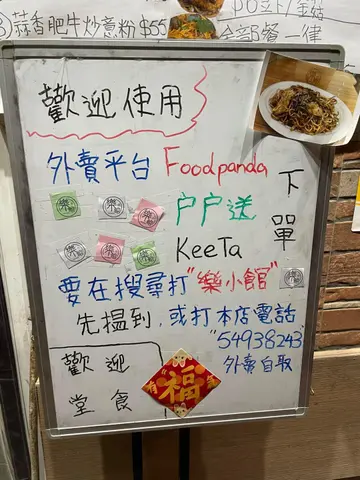 ③蒜香肥牛炒意粉 $55
全部餐一律
歡迎使用
外賣平台 Foodpanda
户户送
KeeTa
下單
要在搜尋打"樂小館"
先搵到,或打本店電話
"54938243"
外賣自取
歡迎
堂食
福